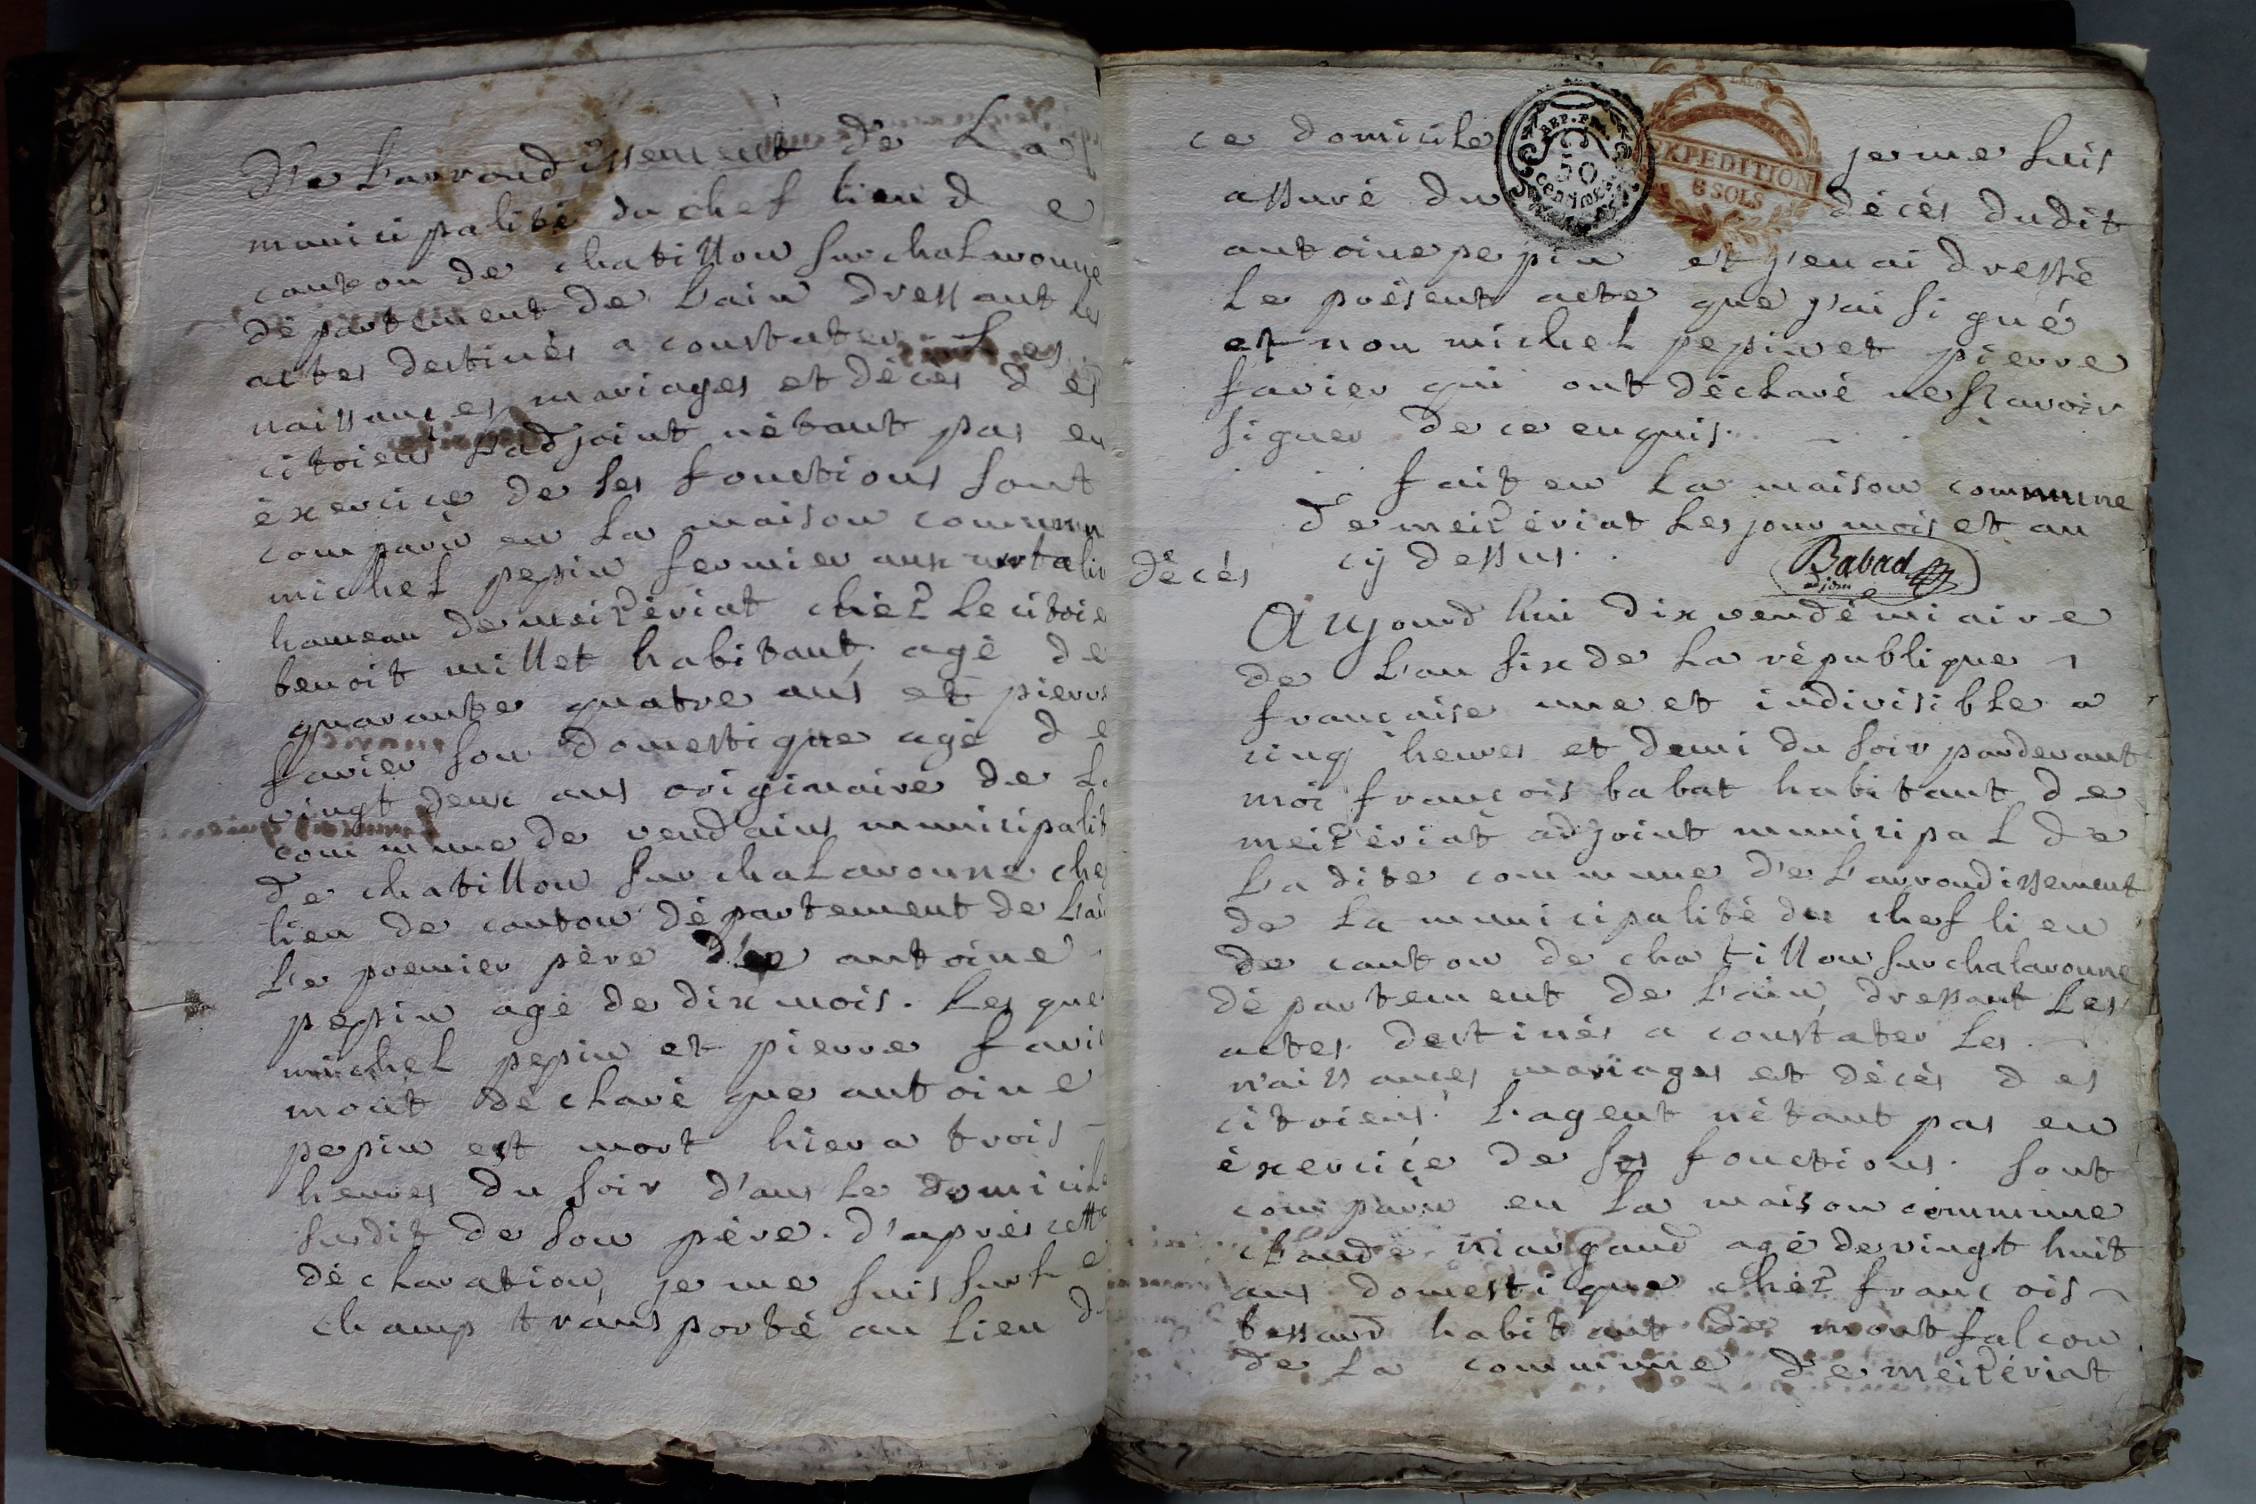 De L'arrondissement de La
municipalité du chef lieu d e
canton de chatillon sur chalaronne
département de L'ain dressant les
actes destinés a constater Les
naissances mariages et décès d es
citoiens L'adjoint nêtant pas en
éxercice de ses fonctions sont
comparu en La maison commun
michel pepin fermier aux
hameau de meizériat chéz le citoie
benoit millet habitant agé de
quarante quatre ans et pierre
favier son domestique agé d e
vingt deux ans originaire de La
commune de vendains municipalit
de chatillon sur chalaronne che
lieu de canton département de L'ain
Le premier père antoine
pepin agé de dix mois. Les que
michel pepin et pierre favie
mont déclaré que antoine
pepin est mort hier a trois
heures du soir d'ans Le domicile
susdit de son père. d'après cette
déclaration, je me suis sur l e
champ transporté au Lieu d
ce domicile je me suis
REP. FRA.
50
CENTIMES
EXPEDITION
6 SOLS
assuré du décès dudit
antoine pepin et j'en ai dressé
Le présent acte que j'ai si gné
et non michel pepin et pierre
favier qui ont déclaré ne sçavoir
signer de ce enquis.
fait en La maison commune
de meizériat Les jour mois et an
cy dessus.
Babad
adjoint
décés
Aujourd hui dix vendémiaire
de L'an six de La république
française une et indivisible a
cinq heures et demi du soir pardevant
moi françois babat habitant de
meizériat adjoint municipal de
La dite commune de L'arrondissement
de La municipalité du chef li eu
de canton de chatillon sur chalaronne
département de L'ain, dressant Les
actes destinés a constater Les
naissances mariages et décès d es
citoiens. L'agent nêtant pas en
éxercice de ses fonctions. sont
comparu en La maison commune
claude niaugand agé de vingt huit
ans domestique chéz françois
tessard habitant de montfalcon
de La commune de méizériat